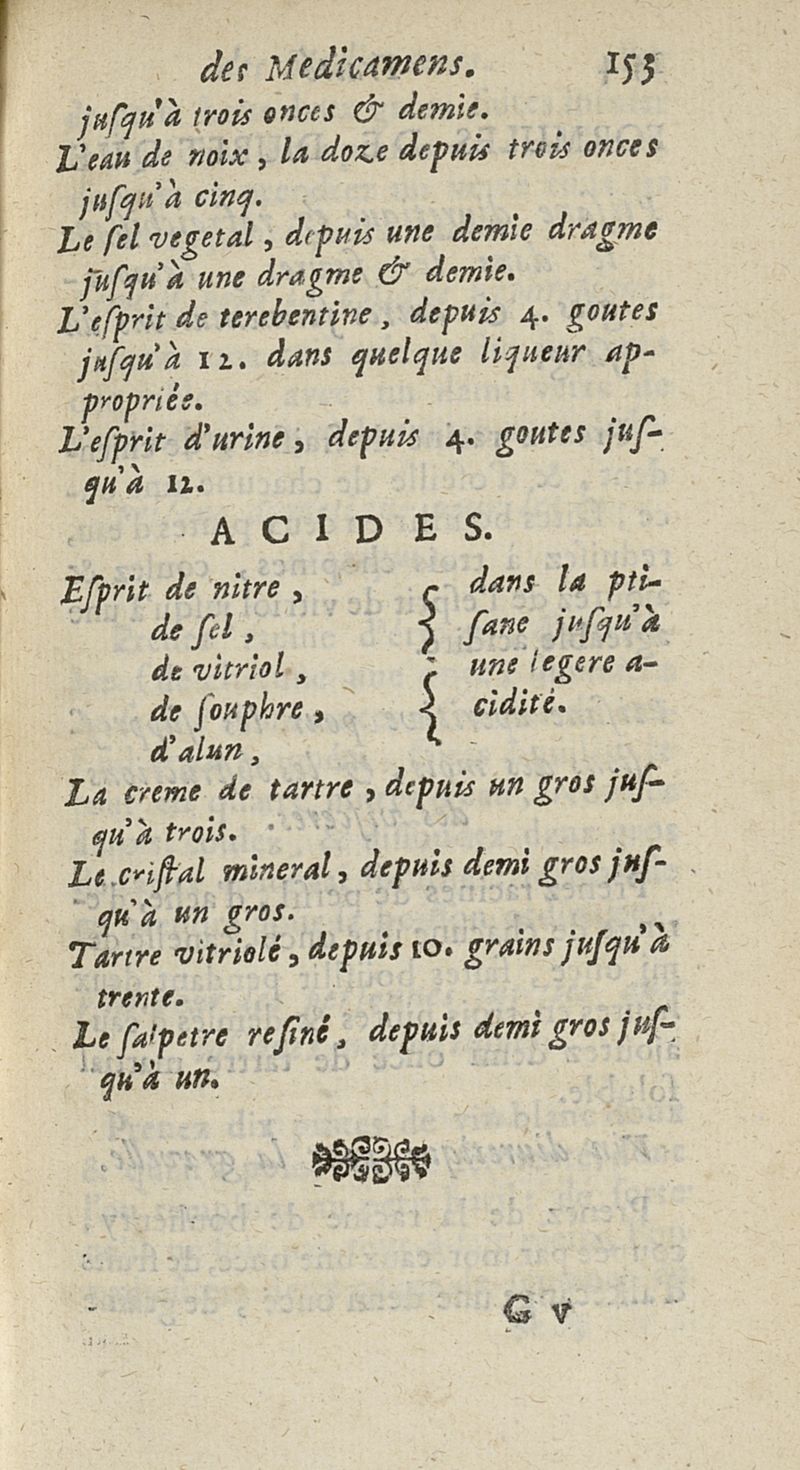 des Medicamens. 153
juſqu'à trois onces & demie.
L'eau de noix, la doze depuis trois onces
juſqu'à cinq.
Le ſel vegetal, depuis une demie dragme
juſqu'à une dragme & demie.
L'eſprit de terebentine, depuis 4. goutes
juſqu'à 12. dans quelque liqueur ap-
propriée.
L'eſprit d'urine, depuis 4. goutes juſ-
qu'à 12.
ACIDES.
Eſprit de nitre,
de ſel,
de vitriol,
de ſouphre,
d'alun,
dans la pti-
ſane juſqu'à
une legere a-
cidité.
La creme de tartre, depuis un gros juſ-
qu'à trois.
Le criſtal mineral, depuis demi gros juſ-
qu'à un gros.
Tartre vitriolé, depuis 10. grains juſqu'à
trente.
Le ſalpetre refiné, depuis demi gros juſ-
qu'à un.
G v